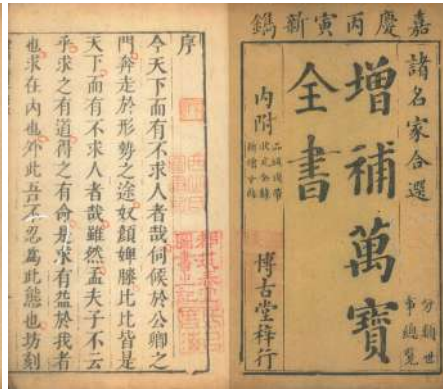 嘉慶丙寅新鐫
諸名家合選
增補萬寶
全書
分類世
事總覽
內附
博古堂梓行
序
今天下而有不求人者哉伺候於公卿之
門奔走於形勢之途奴顏婢膝比比皆是
天下而有不求人者哉雖然孟夫子不云
乎求之有道得之有命是求有益於我者
也求在內也外此吾不忍為此態也坊刻